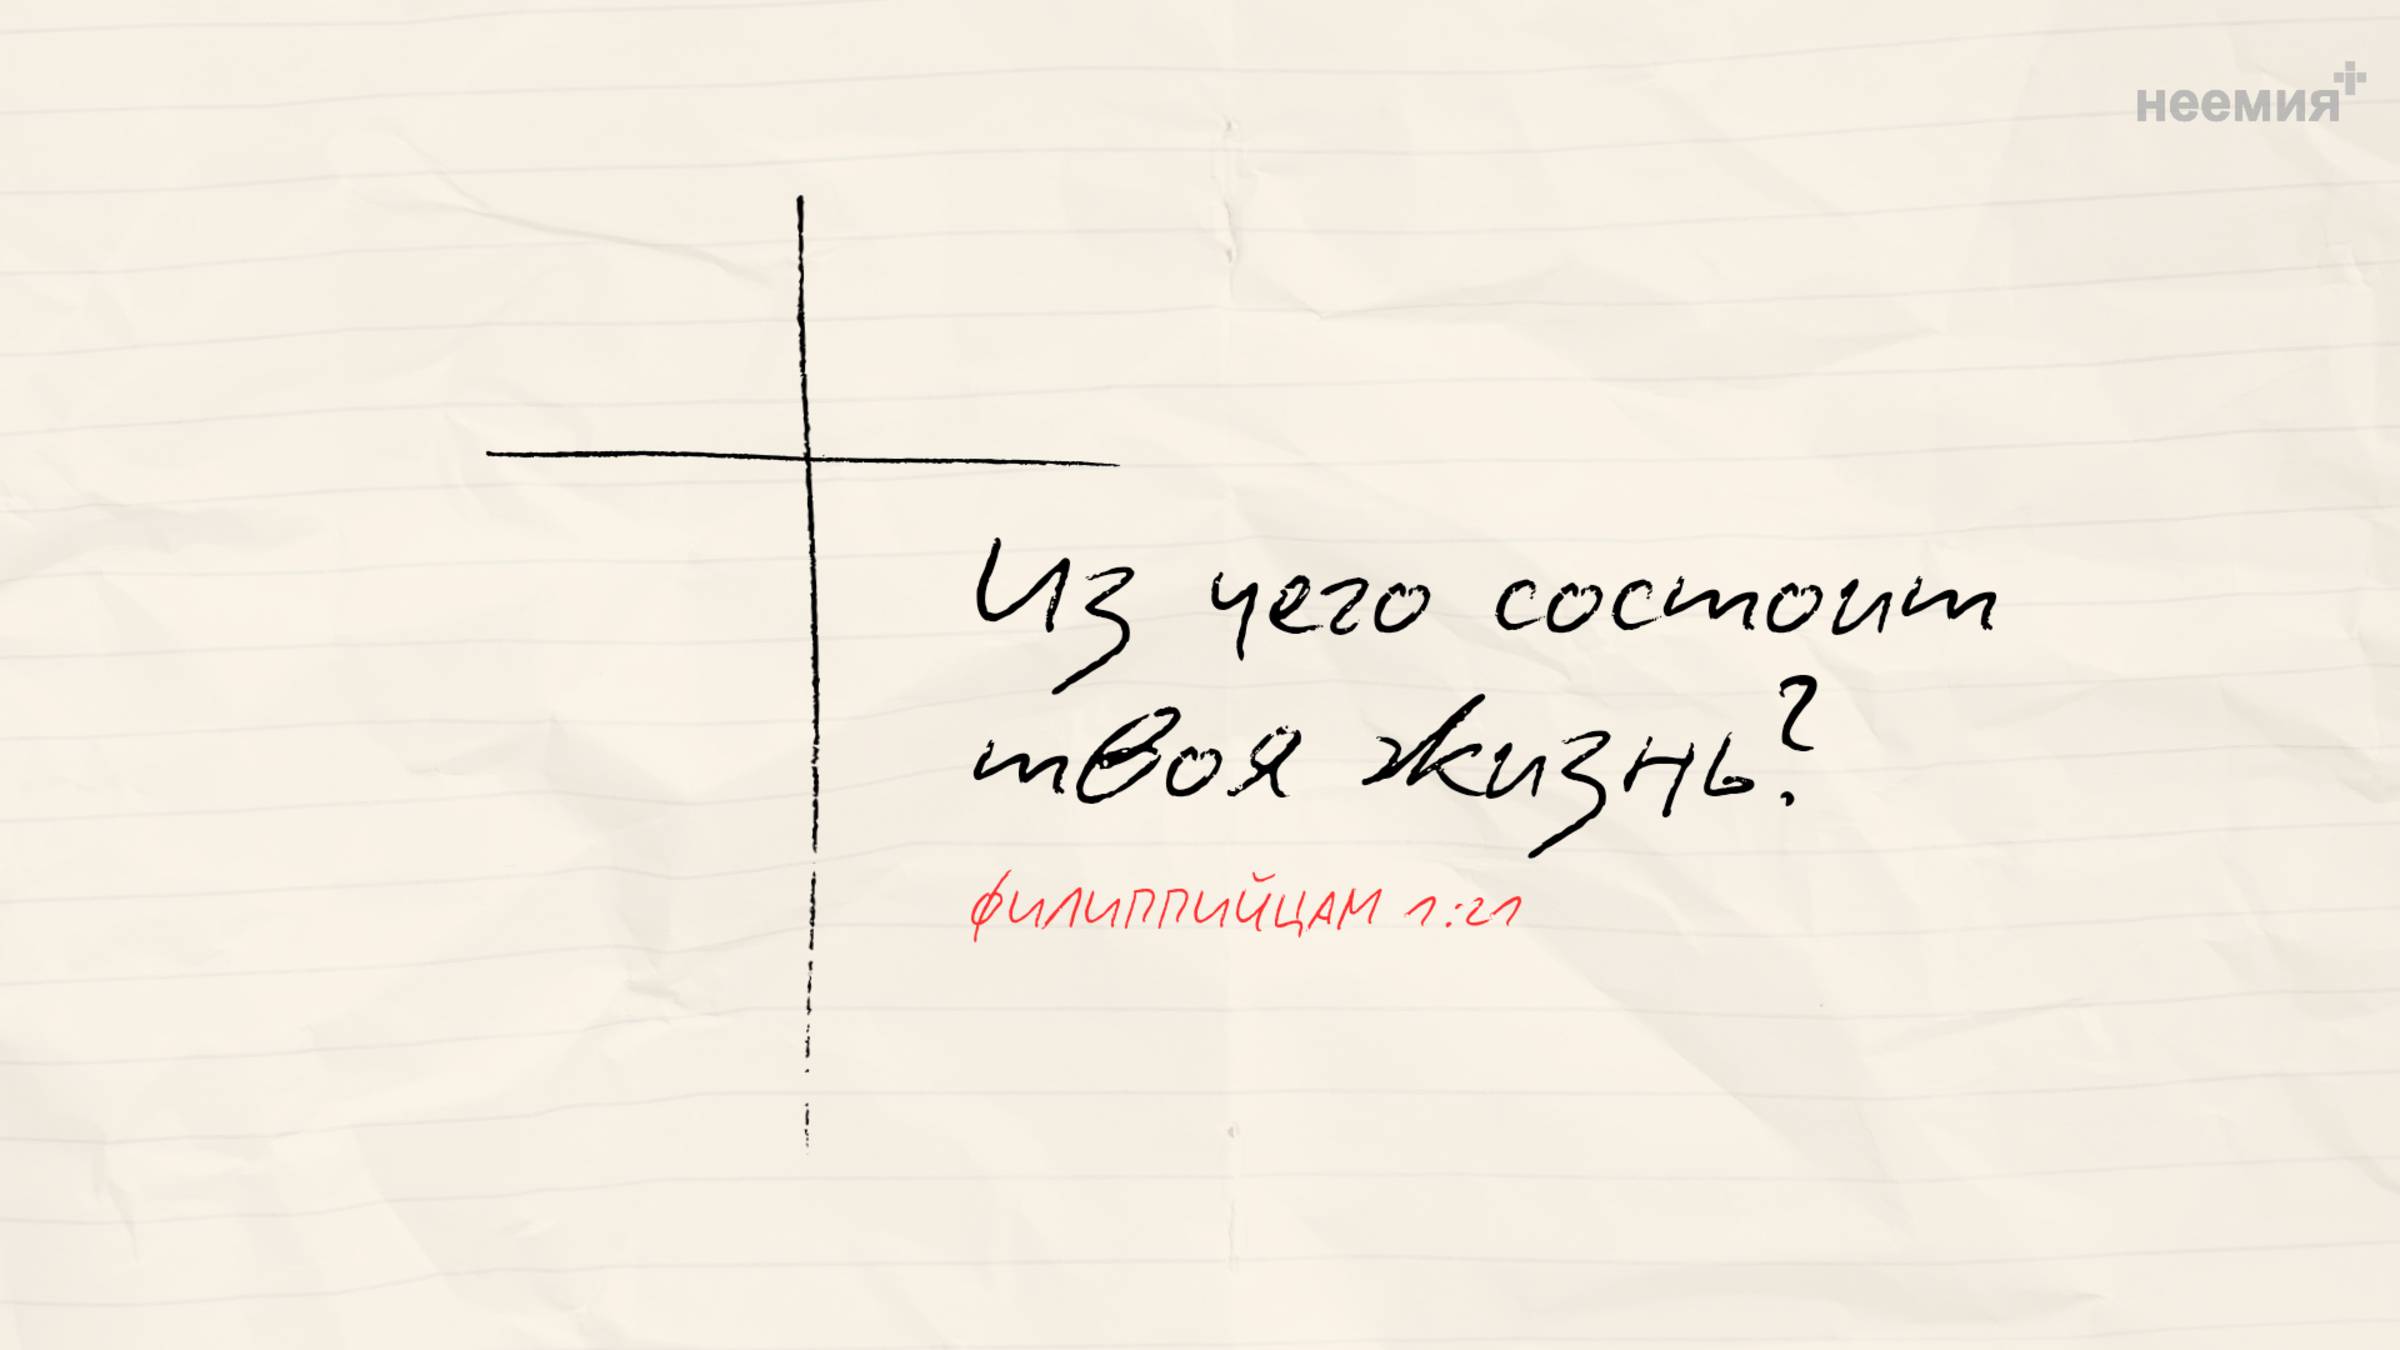 неемия
Из чего состоит
твоя жизнь?
ФИЛИППИЙЦАМ 1:21